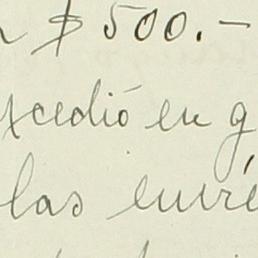 $ 500.-
xcedió en g
las envié